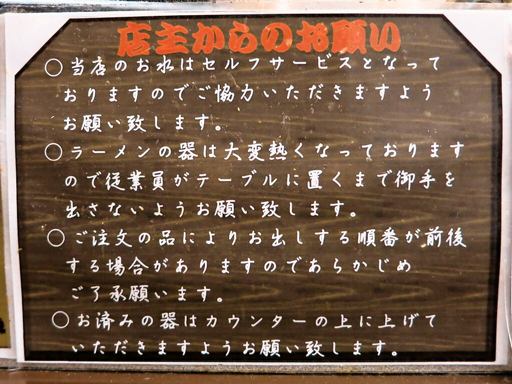 店主からのお願い
○当店のお水はセルフサービスとなって
おりますのでご協力いただきますよう
お願い致します。
○ラーメンの器は大変熱くなっております
ので従業員がテーブルに置くまで御手を
出さないようお願い致します。
○ご注文の品によりお出しする順番が前後
する場合がありますのであらかじめ
ご了承願います。
○お済みの器はカウンターの上に上げて
いただきますようお願い致します。